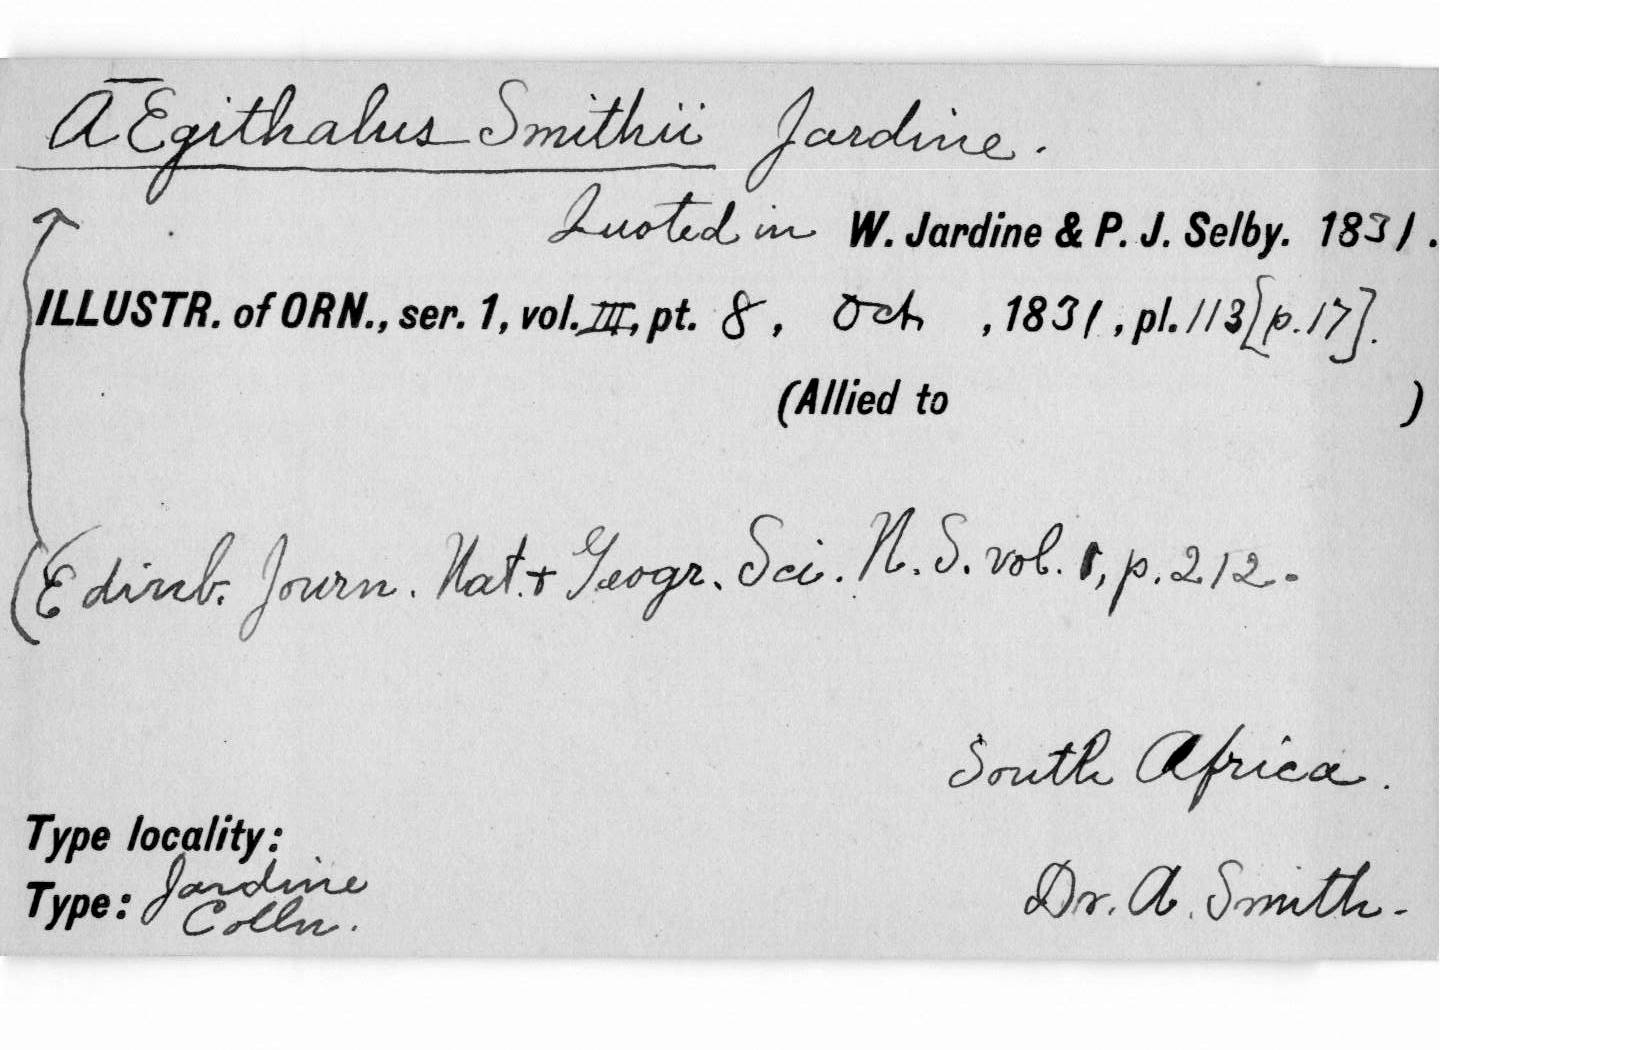 AEgithalus Smithii Jardine.
Quoted in W. Jardine & P. J. Selby. 1831.
ILLUSTR. of ORN., ser. 1, vol. III, pt. 8, Oct , 1831, pl. 113 [p. 17].
(Allied to )
(Edinb. Journ. Nat. + Geogr. Sci. N. S. vol. 1, p. 212.
South Africa.
Type locality:
Type: Jardine Colln.
Dr. A. Smith.